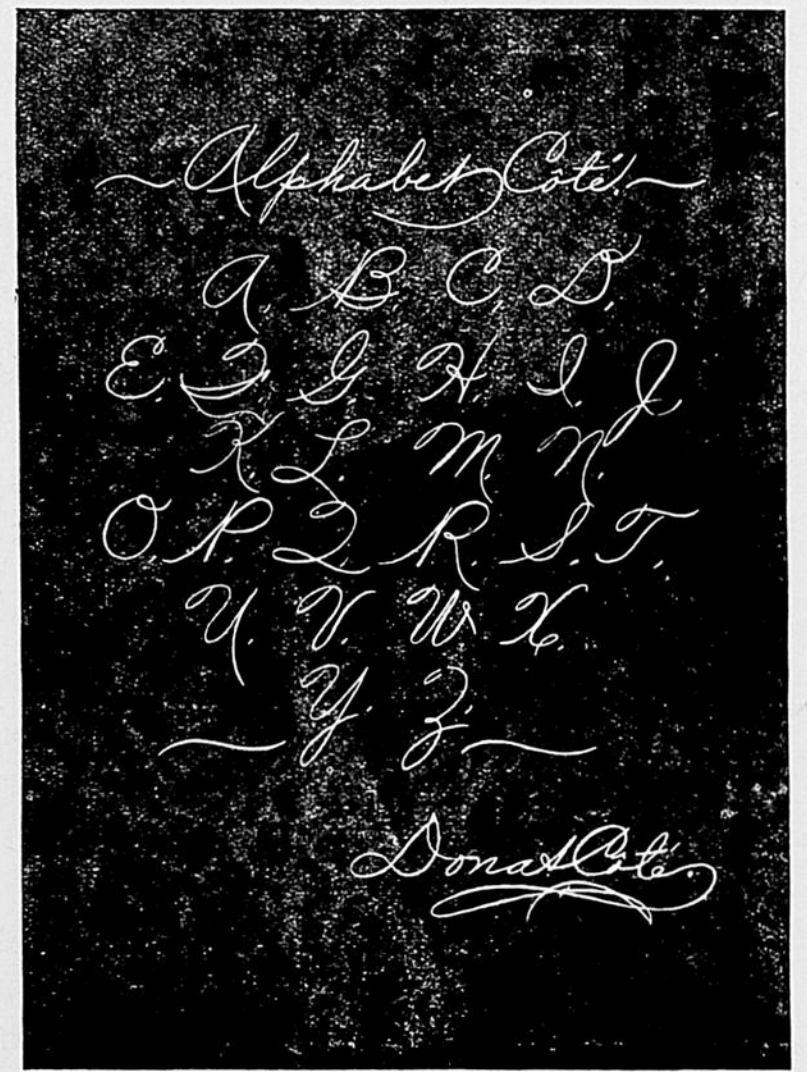 Alphabet Côté.
A, B, C, D,
E. F. G. H. I. J
K. L. M. N.
O. P. Q R. S. T.
U. V. W X.
Y. Z.
Donat Côté.